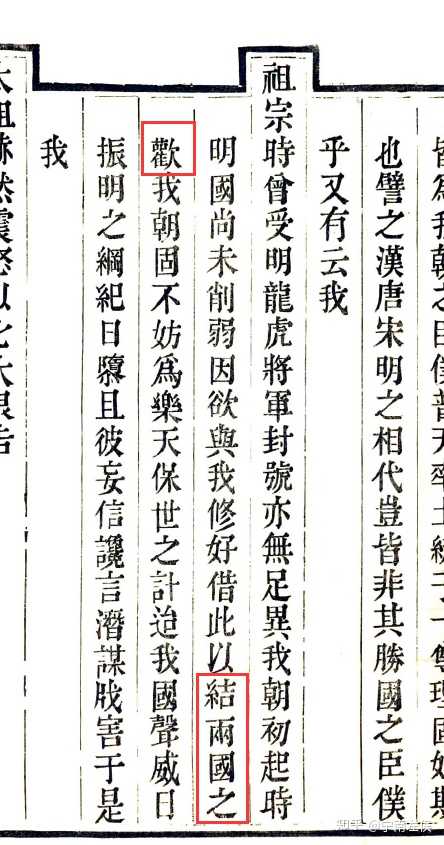 皆爲我朝之臣僕普天率土統于一尊理固如斯
也譬之漢唐宋明之相代豈皆非其勝國之臣僕
乎又有云我
祖宗時曾受明龍虎將軍封號亦無足異我朝初起時
明國尚未削弱因欲與我修好借此以結兩國之
歡我朝固不妨爲樂天保世之計迨我國聲威日
振明之綱紀日隳且彼妄信讒言潛謀戕害于是
我
太祖赫然震怒以七大恨告
知乎